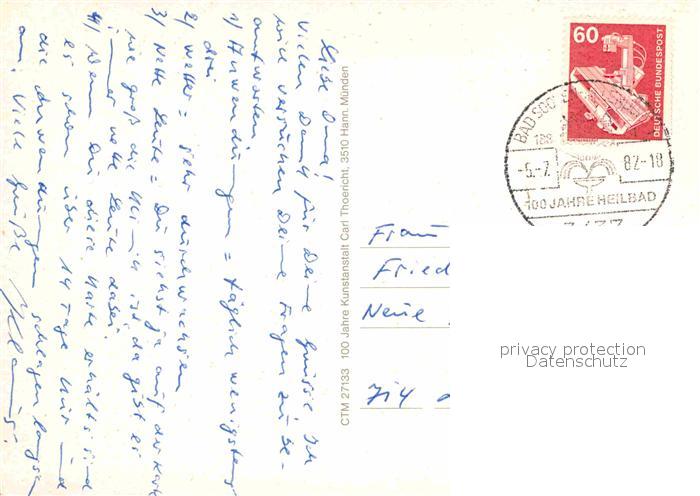 Liebe Oma!
Vielen Dank für Deine Grüsse. Ich
will versuchen Deine Fragen zu be-
antworten.
1) Anwendungen = täglich wenigstens
drei
2) Wetter = sehr durchwachsen
3) Nette Leute = Du siehst ja auf der Karte
wie groß die Klinik ist, da gibt es
immer nette Leute dabei.
4) Wenn Du diese Karte erhältst sind
es schon über 14 Tage hier und
die Anwendungen schlagen langsam
an. Viele Grüße
Klaus!
CTM 27133 100 Jahre Kunstanstalt Carl Thoericht, 3510 Hann. Münden
60
DEUTSCHE BUNDESPOST
BAD SOO
188
-5.-7. 82-18
100 JAHRE HEILBAD
Frau
Fried
Neue
714
privacy protection
Datenschutz